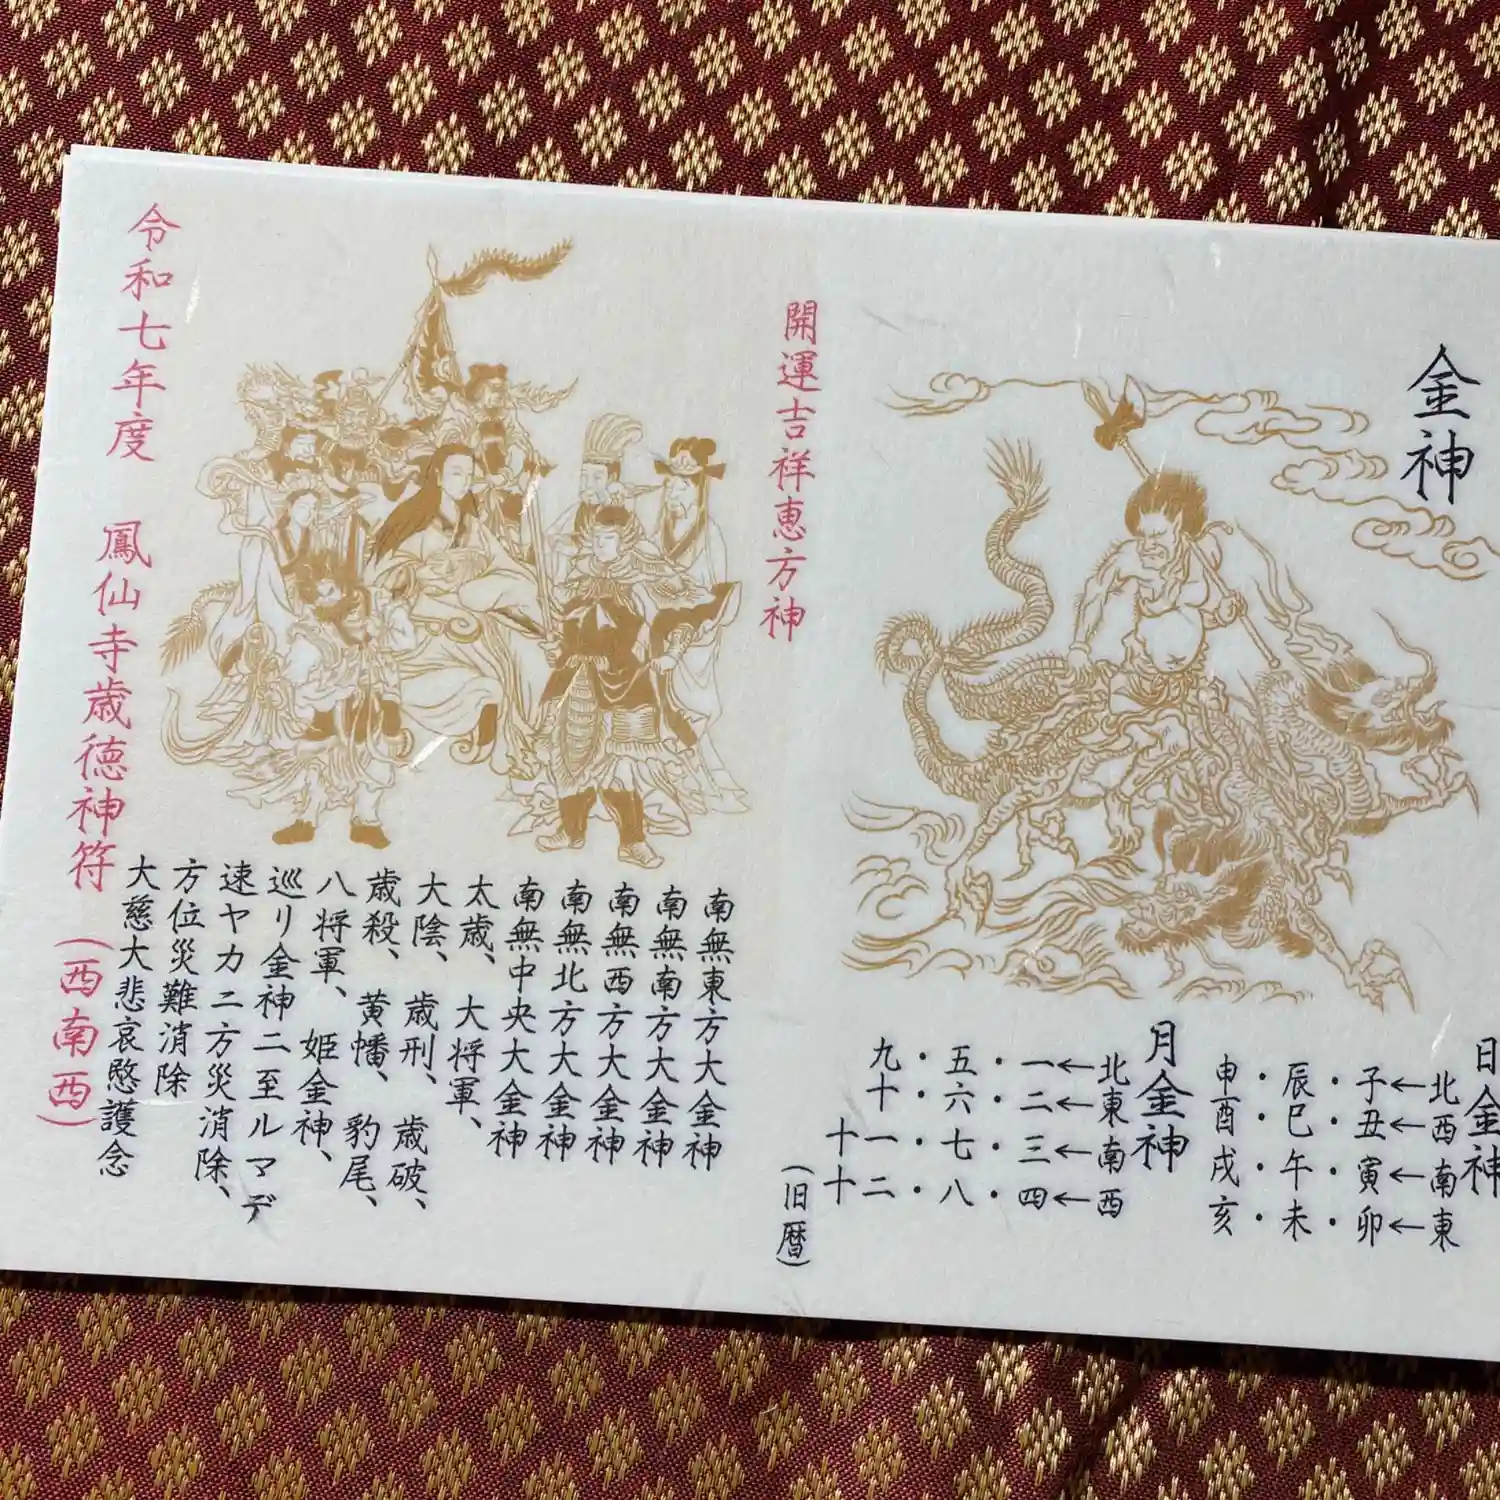 金神
日金神
申・辰・子←北
酉・巳・丑←西
戌・午・寅←南
亥・未・卯←東
月金神
九・五・一←北
十・六・二←東
十一・七・三←南
十二・八・四←西
(旧暦)
開運吉祥恵方神
南無東方大金神
南無南方大金神
南無西方大金神
南無北方大金神
南無中央大金神
太歳、大将軍、
大陰、歳刑、歳破、
歳殺、黄幡、豹尾、
八将軍、姫金神、
巡リ金神ニ至ルマデ
速ヤカニ方災消除、
方位災難消除
大慈大悲哀愍護念
令和七年度 鳳仙寺歳徳神符(西南西)